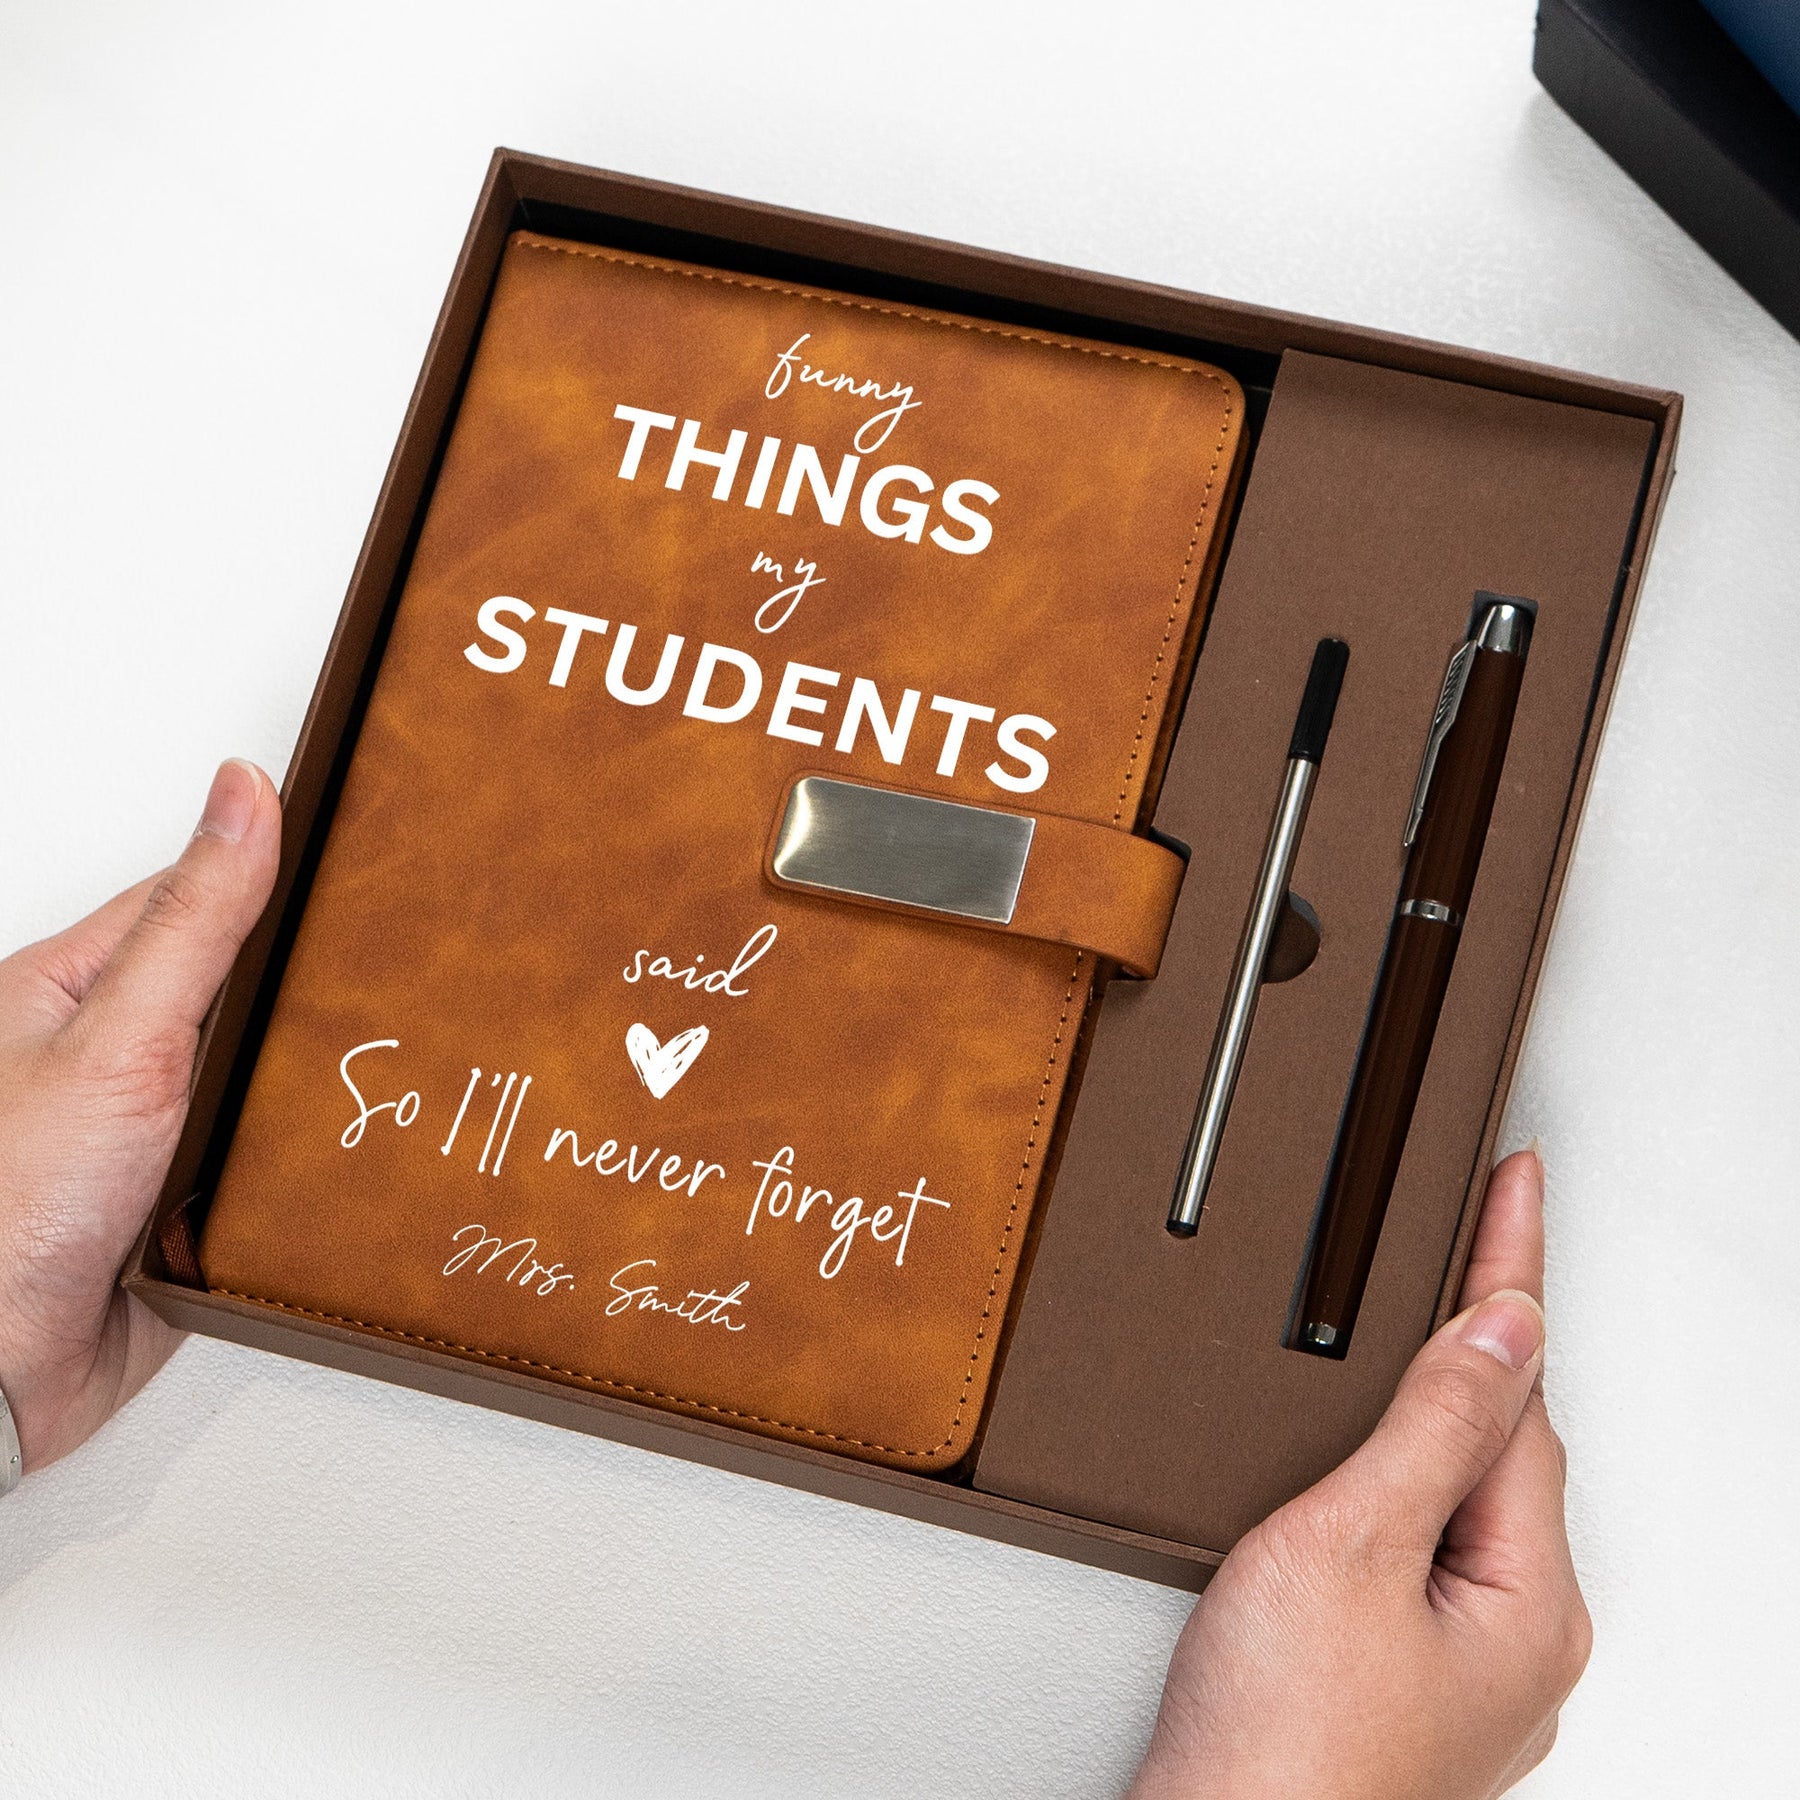 funny
THINGS
my
STUDENTS
said
So I'll never forget
Mrs. Smith